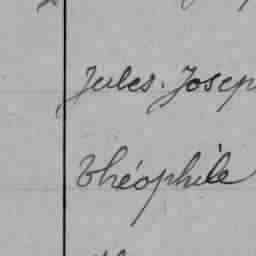 Jules. Josep
Théophile